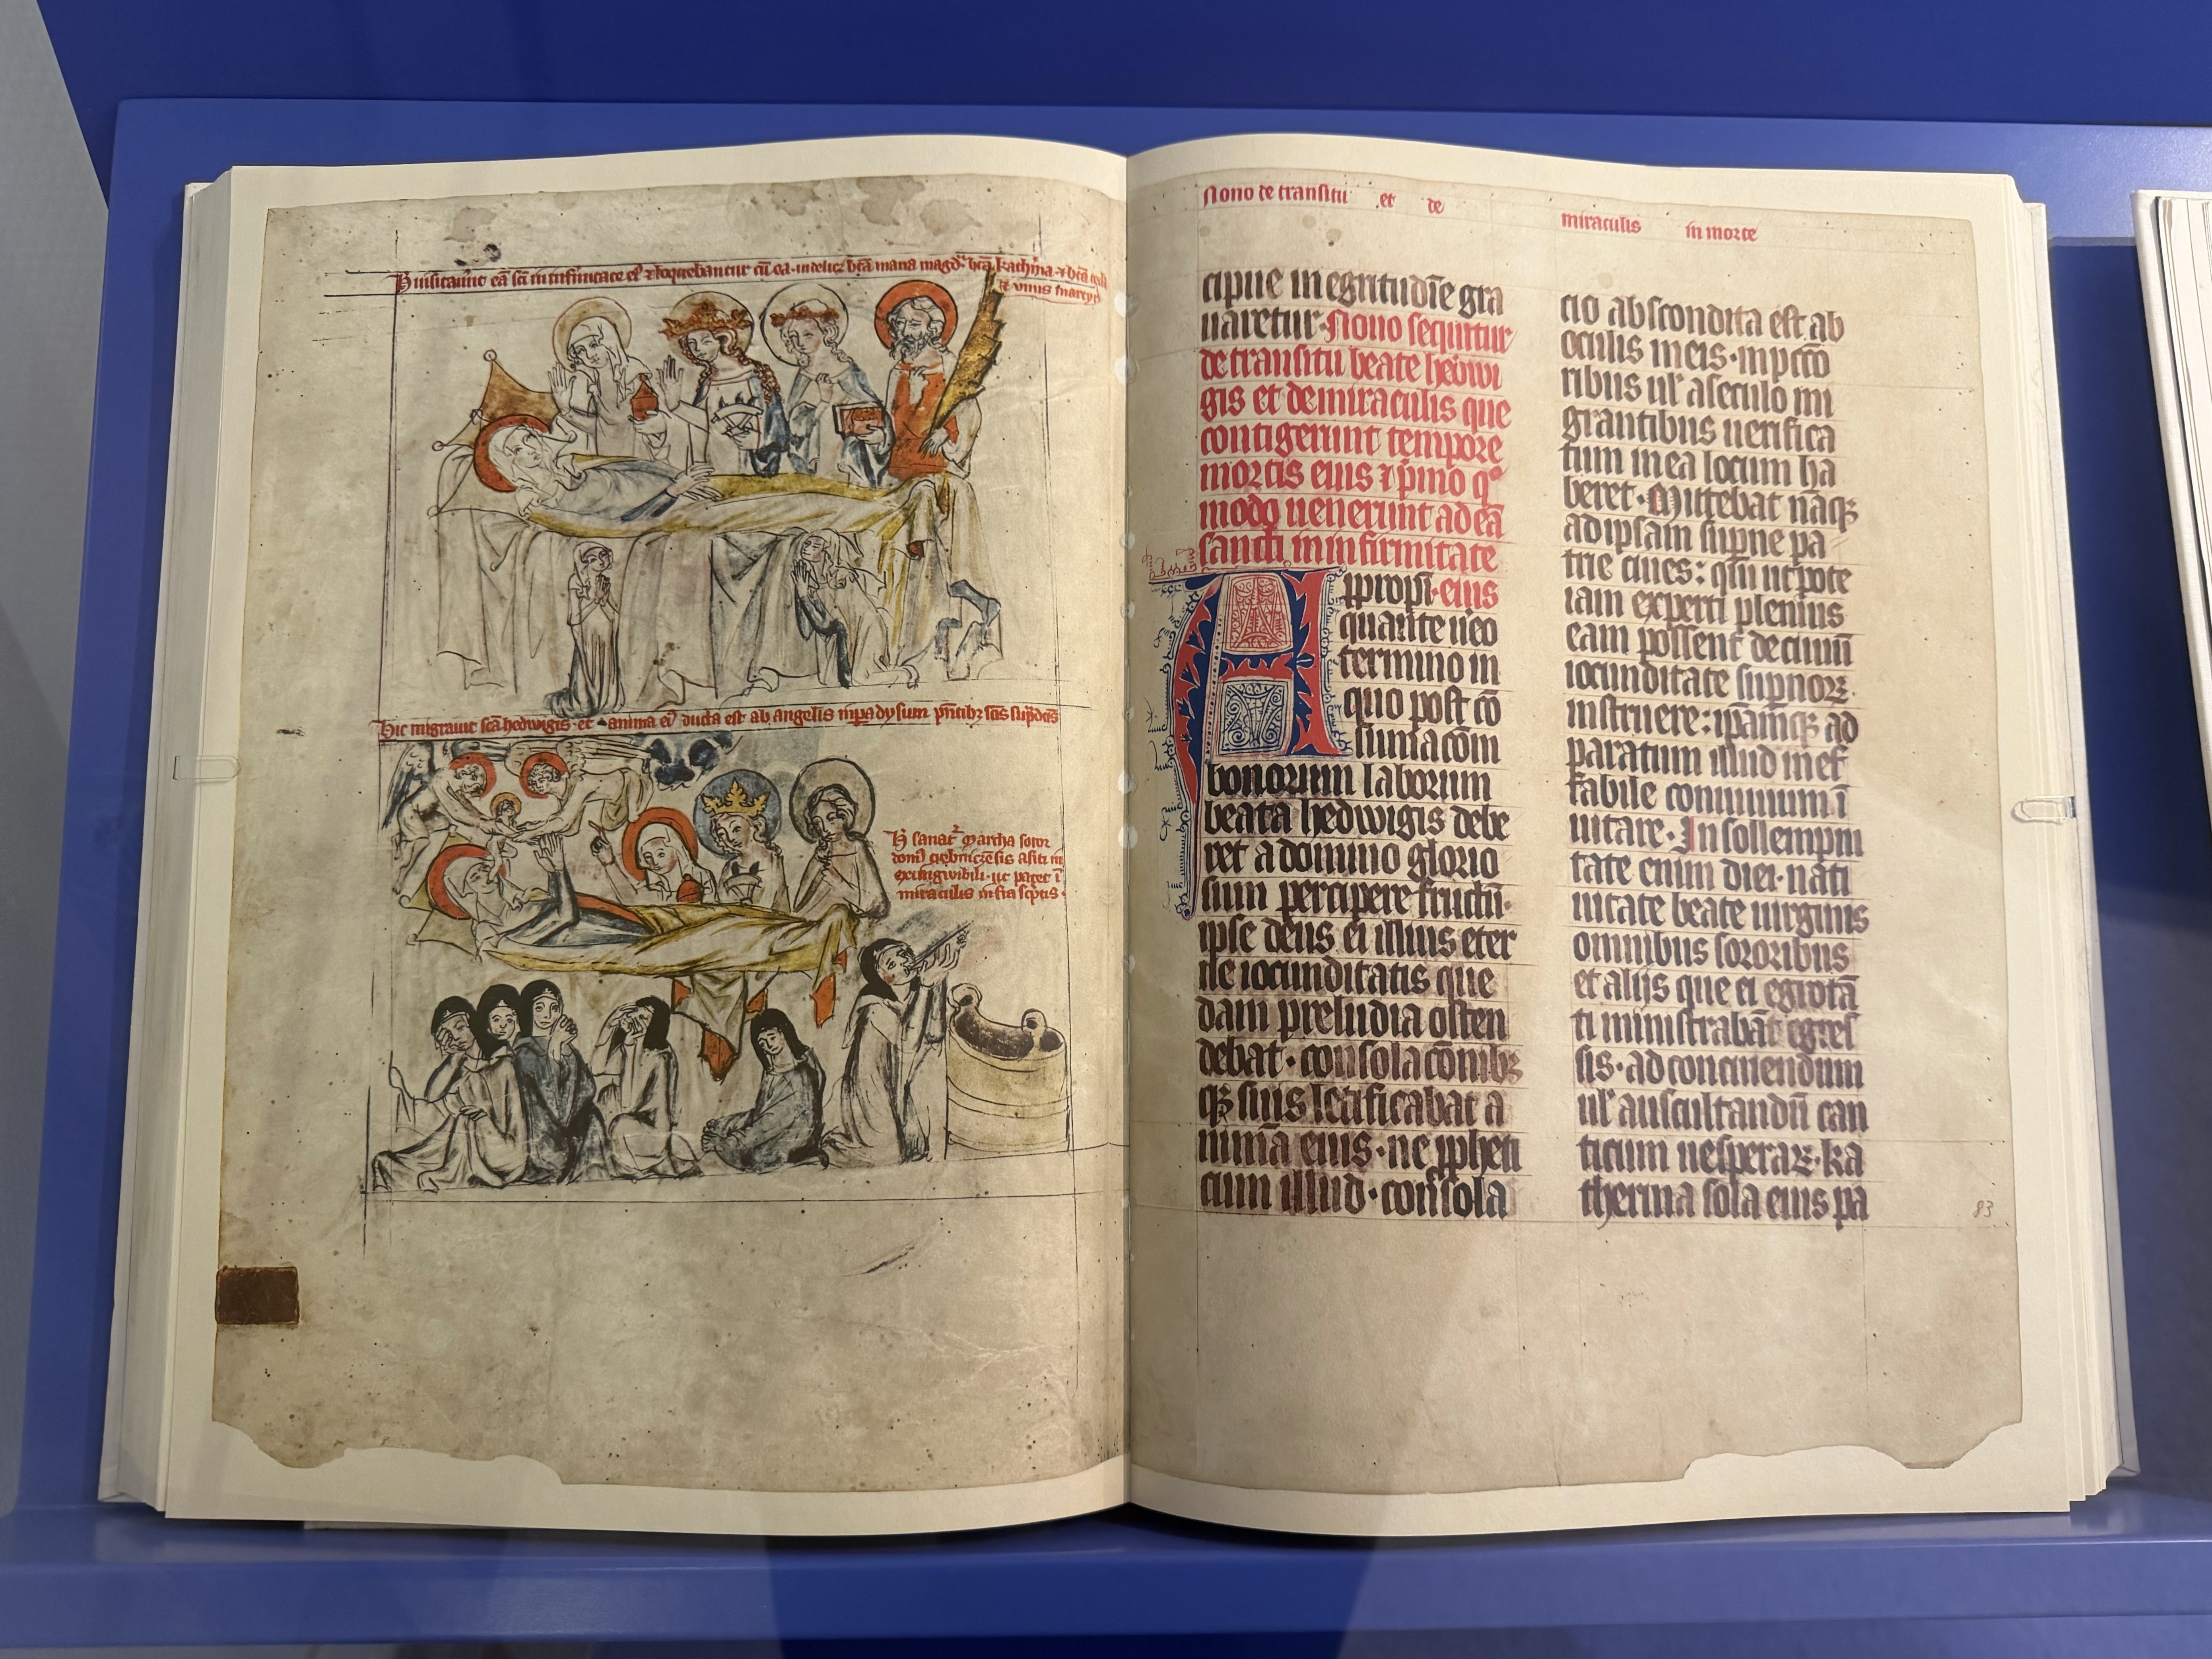 Hic visitaverunt eā scī in infirmitate eiꝰ ⁊ loquebantur cū ea · videlicꝫ btā maria magdꝰ · btā kathīna ⁊ btā
⁊ unus martyr
Hic migravit scā hedwigis · et anima eiꝰ ducta est ab angelis in padysum pn̄tibꝫ scīs supͣdcīs
H sanatꝛ Martha soror
domꝰ trebniczēsis
ut patet ī
miraculis infra scptis ·
Nono de transitu et de
miraculis in morte
cipue in egritudīe gra
varetur · Nono sequitur
de transitu beate hedwi
gis et de miraculis que
contigerunt tempore
mortis eius ⁊ pͥmo qͦ
modo venerunt ad eā
sancti in infirmitate
Appropīquante · eius
quante v͛o
termino in
quo post cō
sūmacōm
bonorum laborum
beata hedwigis debe
ret a domino glorio
sum percipere fructū ·
ipse deus ei illius eter
ne iocunditatis que
dam preludia osten
debat · consolacōnibꝫ
qꝫ suis letificabat a
nimā eius · ne ꝓpheti
cum illud · consola
cio abscondita est ab
oculis meis · in pctō
ribus ul̛ a seculo mi
grantibus verifica
tum in ea locum ha
beret · Mittebat nāqꝫ
ad ipsam supͥne pa
trie cives : qͣn̄ ut pote
iam experti plenius
eam possent de civiū
iocunditate supͥnoꝝ
instruere : ipāmqꝫ ad
paratum illud inef
fabile conviuium ī
vitare · In sollempni
tate enim diei · nati
vitate beate virginis
omnibus sororibus
et alijs que ei egrotā
ti ministrabāt egres
sis · ad concinendum
ul̛ auscultandū can
ticum vesperaꝝ · ka
therina sola eius pa
83